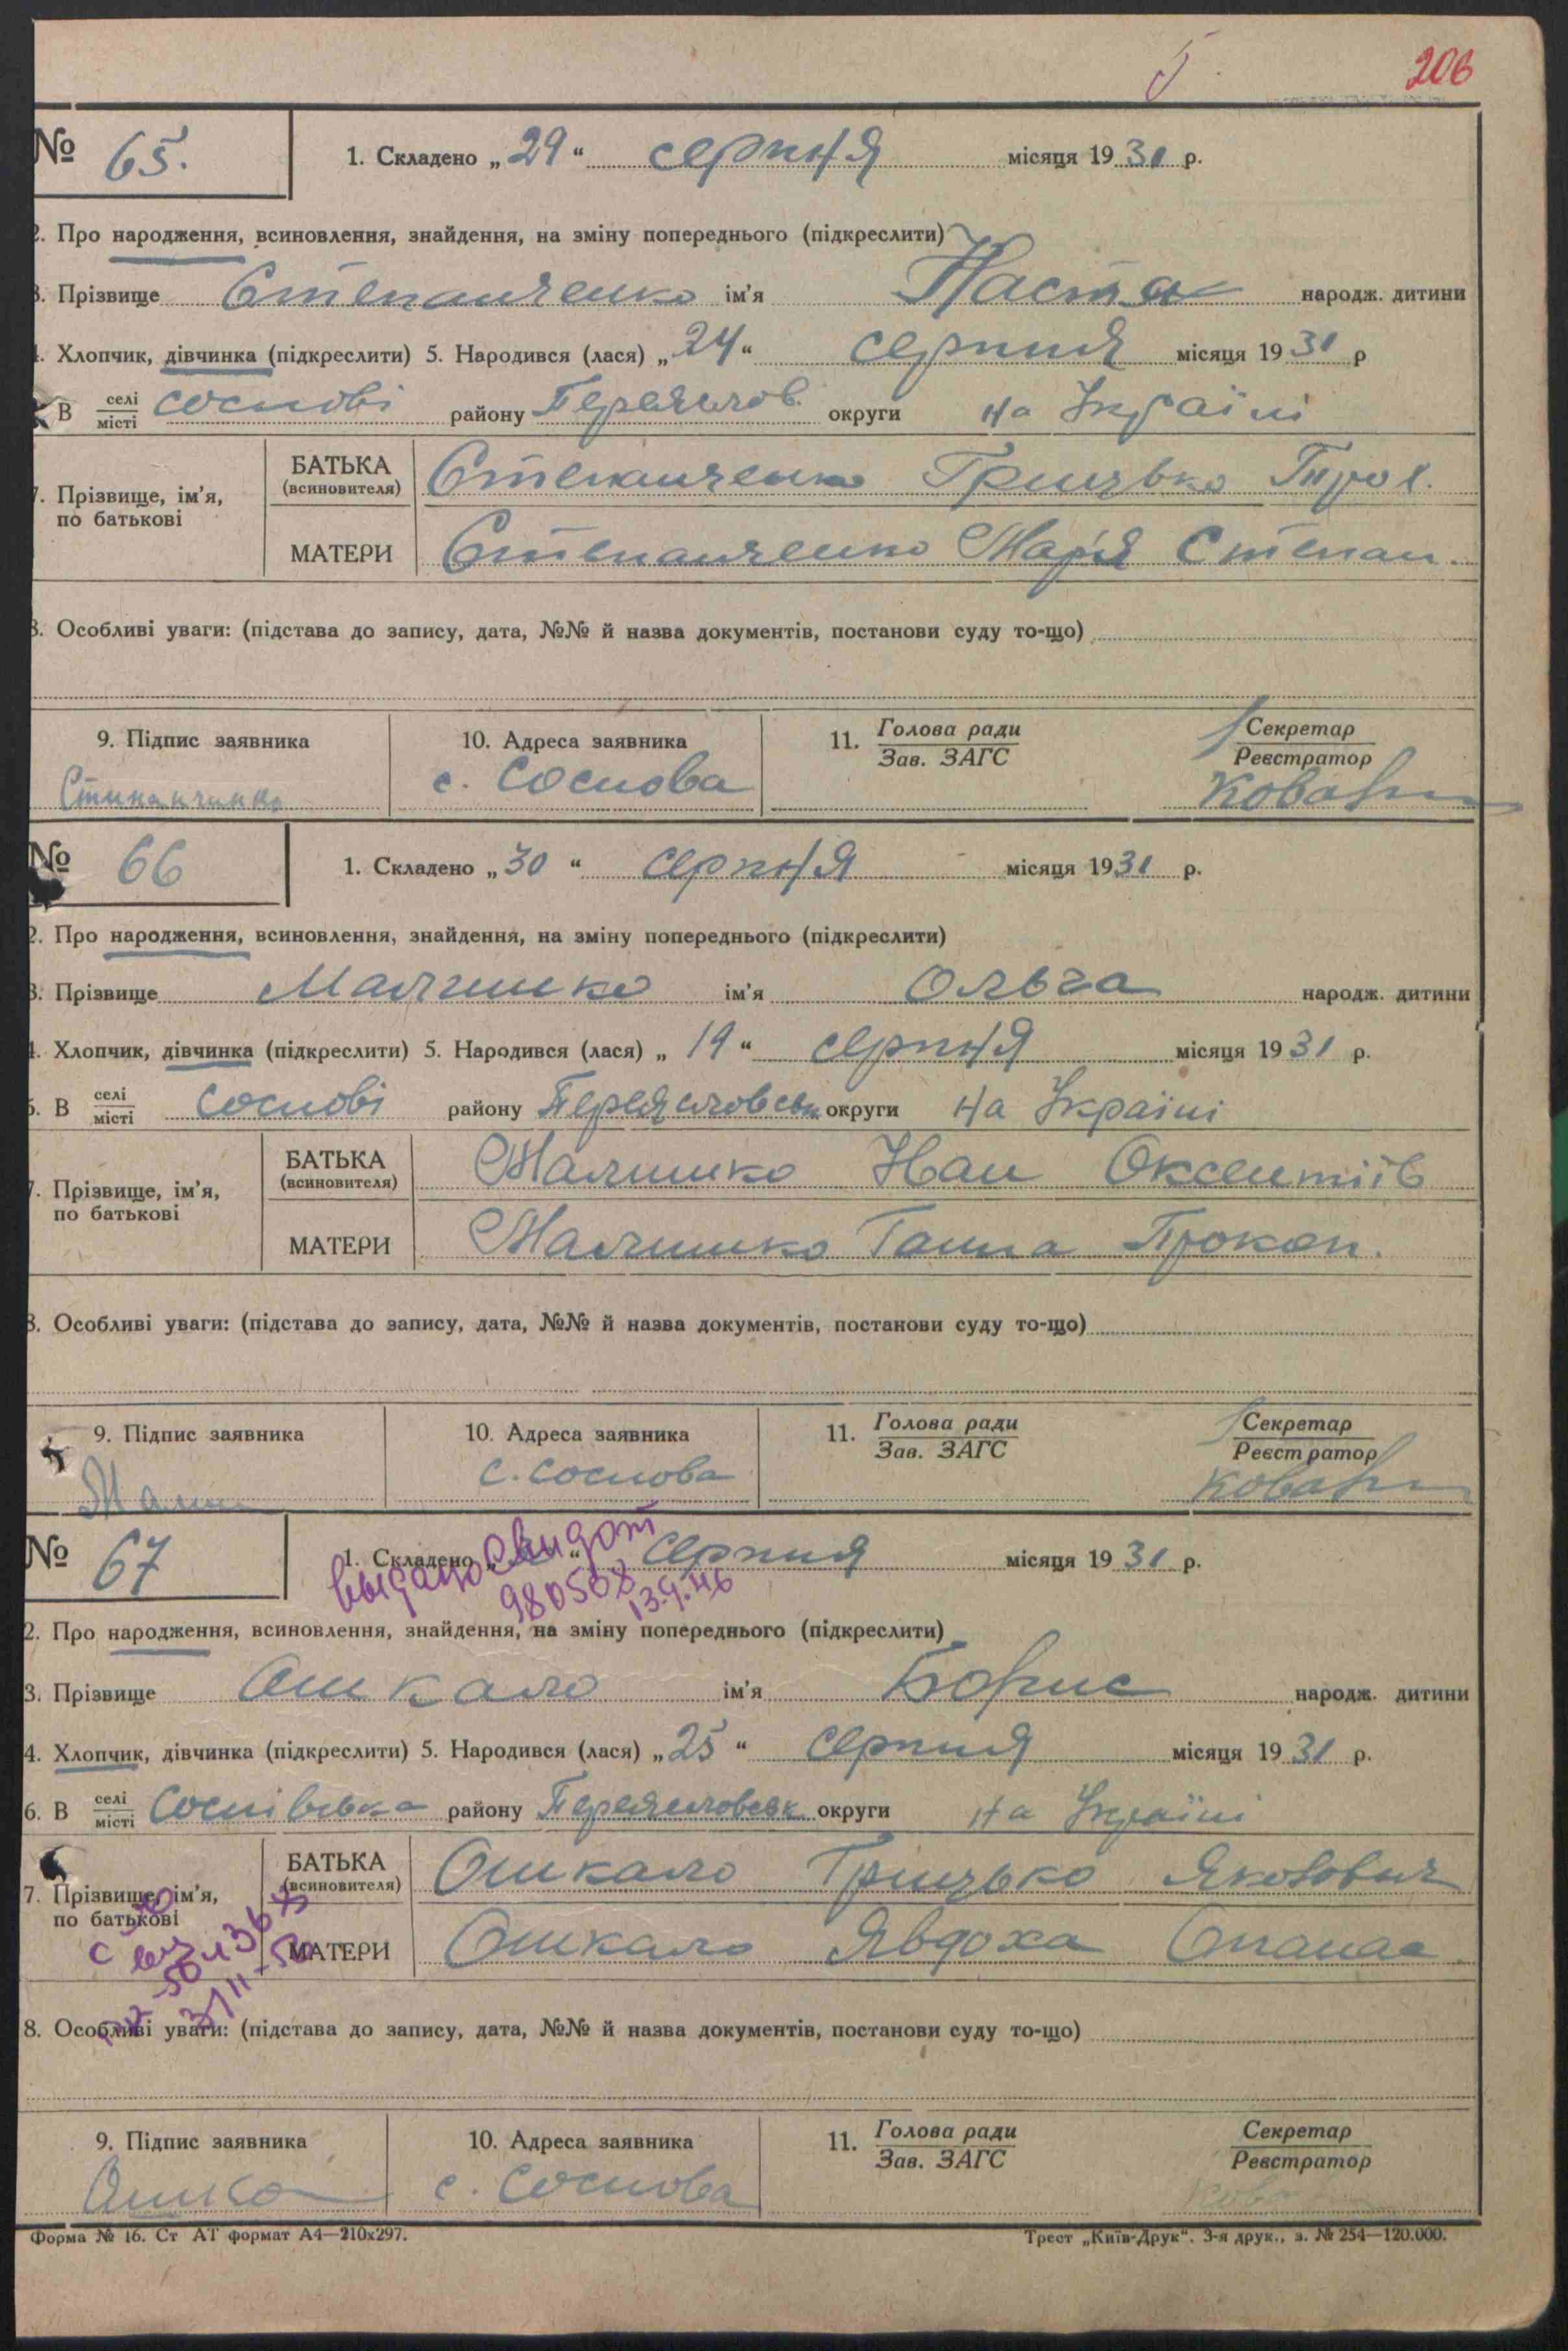 206
№ 65. 1. Складено „29“ серпня місяця 1931 р.
2. Про народження, всиновлення, знайдення, на зміну попереднього (підкреслити)
3. Прізвище Степанченко ім'я Настя народж. дитини
4. Хлопчик, дівчинка (підкреслити) 5. Народився (лася) „24“ серпня місяця 1931 р
В селі місті Соснові району Переяслов. округи на Україні
7. Прізвище, ім'я, по батькові БАТЬКА (всиновителя) Степанченко Грицько Троф.
МАТЕРИ Степанченко Марія Степан.
8. Особливі уваги: (підстава до запису, дата, №№ й назва документів, постанови суду то-що)
9. Підпис заявника 10. Адреса заявника 11. Голова ради Зав. ЗАГС Секретар Реєстратор
Стипанчинко с. Соснова
№ 66 1. Складено „30“ серпня місяця 1931 р.
2. Про народження, всиновлення, знайдення, на зміну попереднього (підкреслити)
3. Прізвище Малишко ім'я Ольга народж. дитини
4. Хлопчик, дівчинка (підкреслити) 5. Народився (лася) „19“ серпня місяця 1931 р.
6. В селі місті Соснові району Переясловськ округи на Україні
7. Прізвище, ім'я, по батькові БАТЬКА (всиновителя) Малишко Іван Оксентіїв
МАТЕРИ Малишко Ганна Прокоп.
8. Особливі уваги: (підстава до запису, дата, №№ й назва документів, постанови суду то-що)
9. Підпис заявника 10. Адреса заявника 11. Голова ради Зав. ЗАГС Секретар Реєстратор
с. Соснова
№ 67 1. Складено „ “ серпня місяця 1931 р.
выдано свидот
980508
13.9.46
2. Про народження, всиновлення, знайдення, на зміну попереднього (підкреслити)
3. Прізвище Ошкало ім'я Борис народж. дитини
4. Хлопчик, дівчинка (підкреслити) 5. Народився (лася) „25“ серпня місяця 1931 р.
6. В селі місті Соснівська району Переясловськ округи на Україні
7. Прізвище, ім'я, по батькові БАТЬКА (всиновителя) Ошкало Грицько Якович
МАТЕРИ Ошкало Явдоха Опанас
8. Особливі уваги: (підстава до запису, дата, №№ й назва документів, постанови суду то-що)
9. Підпис заявника 10. Адреса заявника 11. Голова ради Зав. ЗАГС Секретар Реєстратор
Ошкало с. Соснова
Форма № 16. Ст АТ формат А4—210х297. Трест „Київ-Друк“. 3-я друк., з. № 254—120.000.